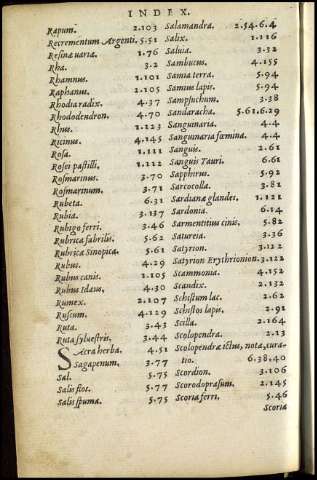 INDEX.
Rapum. 2.103
Recrementum Argenti. 5.51
Resinæ uariæ. 1.76
Rha. 3.2
Rhamnus. 1.101
Raphanus. 2.105
Rhodia radix. 4.37
Rhododendron. 4.70
Rhus. 1.123
Ricinus. 4.145
Rosa. 1.111
Rosei pastilli. 1.112
Rosmarinus. 3.70
Rosmarinum. 3.71
Rubeta. 6.31
Rubia. 3.137
Rubigo ferri. 3.46
Rubrica fabrilis. 5.62
Rubrica Sinopica. 5.61
Rubus. 4.29
Rubus canis. 1.105
Rubus Idæus. 4.30
Rumex. 2.107
Ruscum. 4.129
Ruta. 3.43
Ruta syluestris. 3.44
Sacra herba. 4.51
Sagapenum. 3.77
Sal. 5.75
Salis flos. 5.77
Salis spuma. 5.75
Salamandra. 2.54.6.4
Salix. 1.116
Saluia. 3.32
Sambucus. 4.155
Samia terra. 5.94
Samius lapis. 5.94
Sampsuchum. 3.38
Sandaracha. 5.61.6.29
Sanguinaria. 4.4
Sanguinaria fœmina. 4.4
Sanguis. 2.61
Sanguis Tauri. 6.61
Sapphirus. 5.92
Sarcocolla. 3.81
Sardianæ glandes. 1.121
Sardonia. 6.14
Sarmentitius cinis. 5.82
Satureia. 3.36
Satyrion. 3.122
Satyrion Erythronion. 3.122
Scammonia. 4.152
Scandix. 2.132
Schistum lac. 2.62
Schistos lapis. 2.91
Scilla. 2.164
Scolopendra. 2.13
Scolopendræ ictus, nota, cura-
tio. 6.38.40
Scordion. 3.106
Scorodoprasum. 2.145
Scoria ferri. 5.46
Scoria